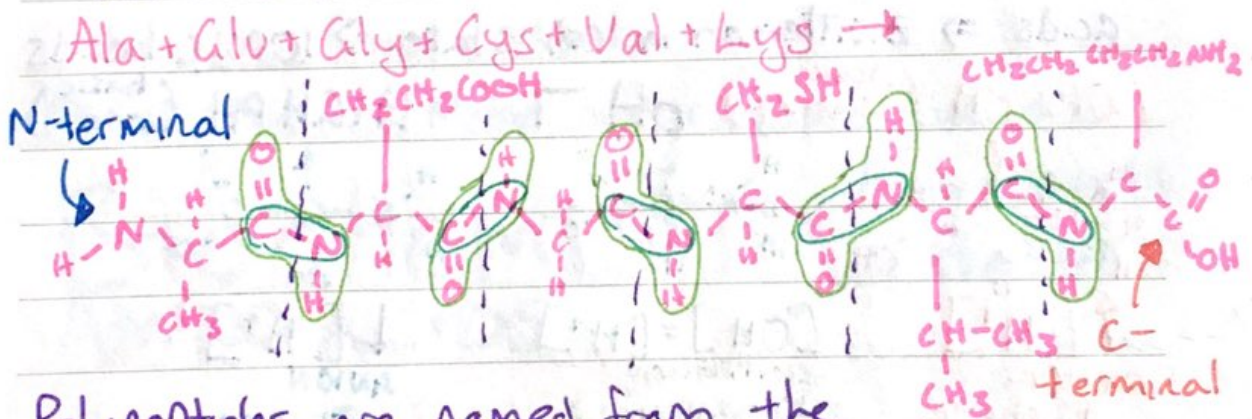 Ala + Glu + Gly + Cys + Val + Lys →
CH2CH2COOH CH2 SH CH2CH2 CH2CH2NH2
N-terminal
H O H O H O
H H || H || H ||
H N C C N C C N C C N C C N C C N C C O OH
CH3 H H O H H H O H
CH-CH3
CH3
C-
terminal
Polypeptides are named from the